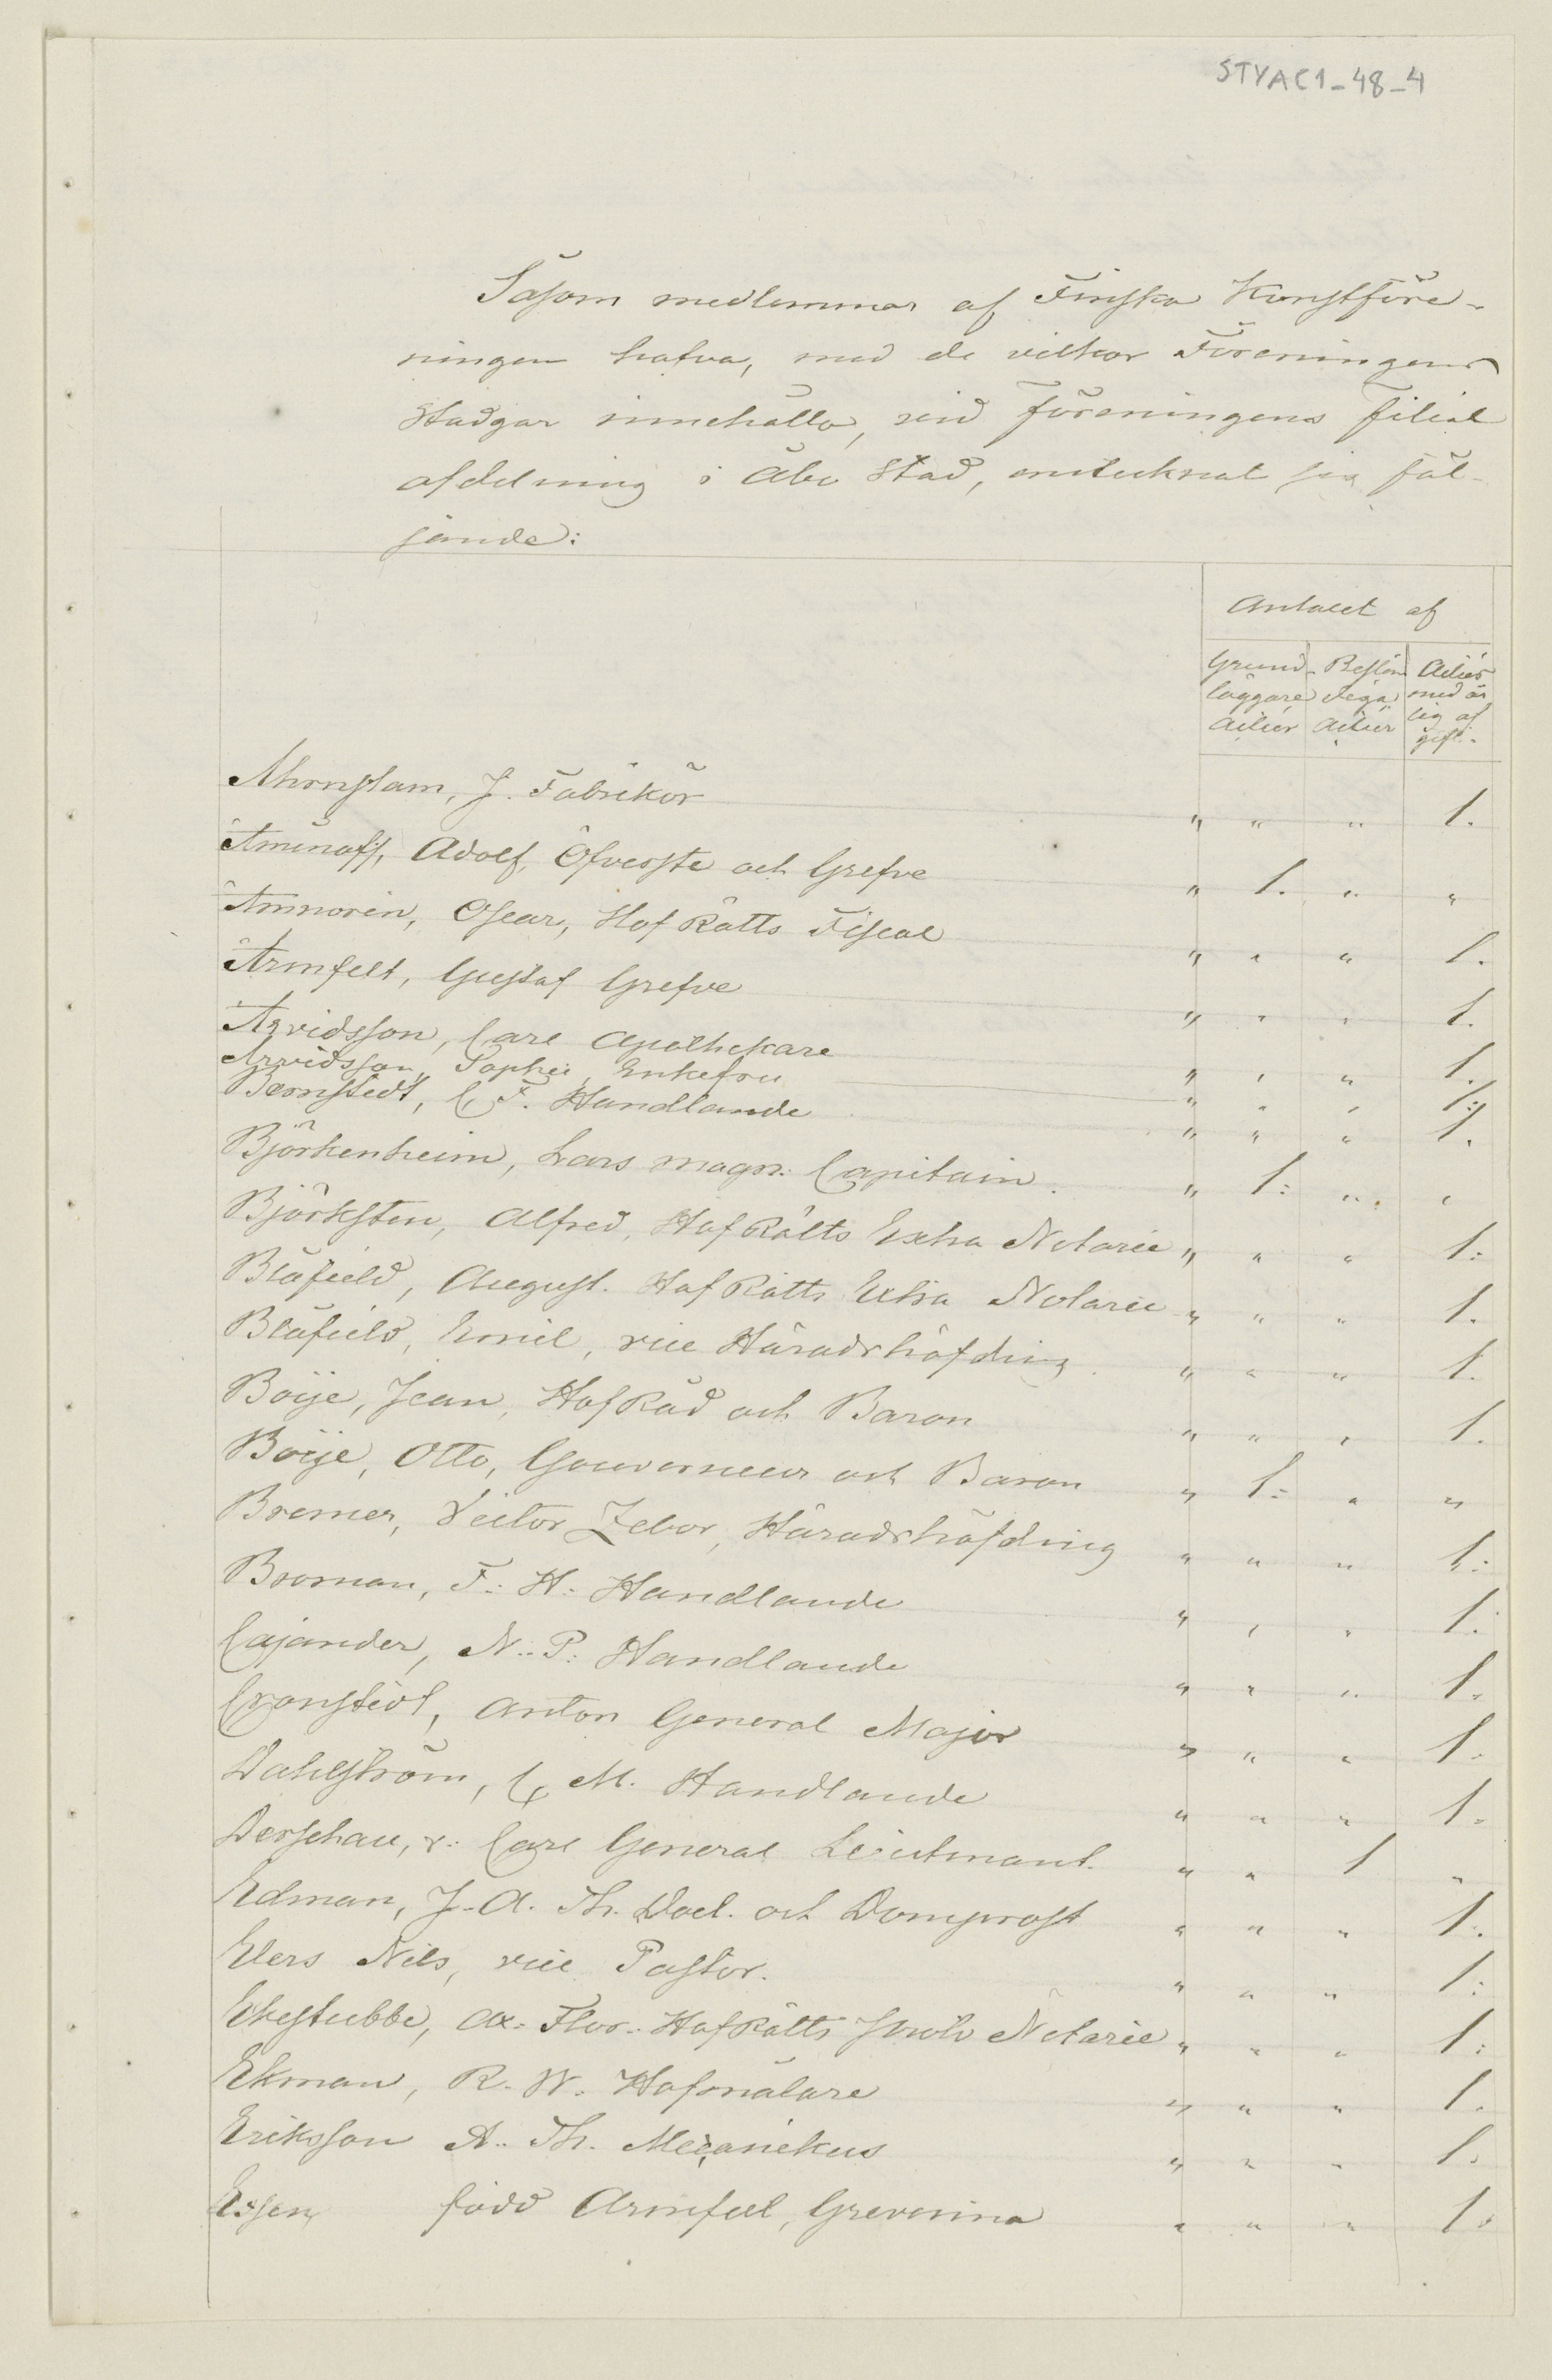 STYAC1-48-4
Såsom medlemmar af Finska Konstföre-
ningen hafva, med de vilkor Föreningens
Stadgar innehålla, vid Föreningens Filial
afdelning i Åbo Stad, antecknat sig föl-
jande:
Antalet af
Grund- Bestän Actier
läggare diga med år
actier actier lig af
gift.
Ahrnstam, J. Fabrikör " " " 1.
Aminoff, Adolf, Öfverste och Grefve " 1. " "
Ammorin, Oscar, HofRätts Fiscal " " " 1.
Armfelt, Gustaf Grefve " " " 1.
Arvidsson, Carl Apothekare " " " 1.
Arvidsson, Sophie, Enkefru " " " 1.
Bærnstedt, C. F. Handlande " " " 1.
Björkenheim, Lars magn: Capitain. " 1: " "
Björksten, Alfred, HofRätts Extra Notarie " " " 1:
Blåfield, August. HofRätts Extra Notarie " " " 1.
Blåfield, Emil, vice Häradshöfding. " " " 1.
Boije, Jean, HofRåd och Baron " " " 1.
Boije, Otto, Gouverneur och Baron " 1: " "
Bremer, Victor Zebor, Häradshöfding " " " 1:
Broman, F: H: Handlande " " " 1:
Cajander, N.. P: Handlande " " " 1.
Cronstedt, Anton General Major " " " 1.
Dahlström, C, M. Handlande " " " 1.
Derschau, v: Carl General Lieutnant. " " 1 "
Edman, J. A. Th. Doct. och Domprost " " " 1:
Elers Nils, vice Pastor. " " " 1:
Ekestubbe, Ax: Flor: HofRätts Notarie " " " 1:
Ekman, R. W. Hofmålare " " " 1.
Eriksson A.. Th. Mecanikus " " " 1.
Essen, född Armfelt, Grevinna " " " 1.